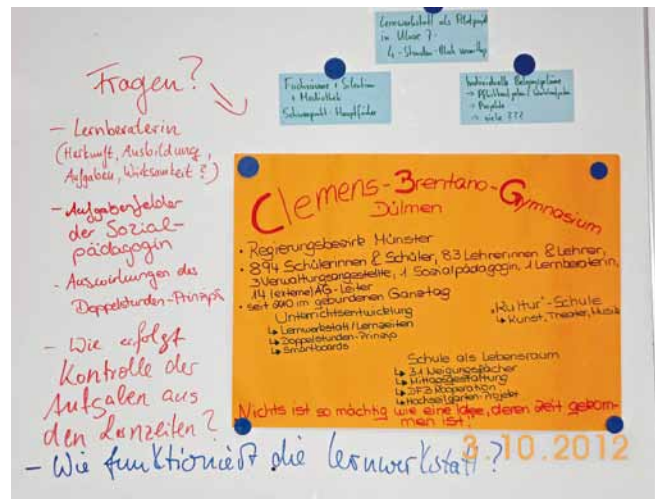 Lernwerkstatt als Pilotprojekt
in Klasse 7
4-Stunden-Block vormittag
Fachräume + Situation
+ Mediothek
Schwerpunkt: Hauptfächer
Individuelle
→ Projekte
→ viele ???
Fragen?
- Lernberaterin
(Herkunft, Ausbildung,
Aufgaben, Wirksamkeit?)
- Aufgabenfelder
der Sozial-
pädagogin
- Auswirkungen des
Doppelstunden-Prinzips
- Wie erfolgt
Kontrolle der
Aufgaben aus
den Lernzeiten?
- Wie funktioniert die Lernwerkstatt?
Clemens-Brentano-Gymnasium
Dülmen
• Regierungsbezirk Münster
• 894 Schülerinnen & Schüler, 83 Lehrerinnen & Lehrer,
3 Verwaltungsangestellte, 1 Sozialpädagogin, 1 Lernberaterin,
14 (externe) AG-Leiter
• seit 2010 im gebundenen Ganztag
Unterrichtsentwicklung
↳ Lernwerkstatt/Lernzeiten
↳ Doppelstunden-Prinzip
↳ Smartboards
"Kultur"-Schule
↳ Kunst, Theater, Musik
Schule als Lebensraum
↳ 31 Neigungsfächer
↳ Mittagsgestaltung
↳ DFB Kooperation
↳ Hochseilgarten-Projekt
Nichts ist so mächtig wie eine Idee, deren Zeit gekom-
men ist!
3.10.2012